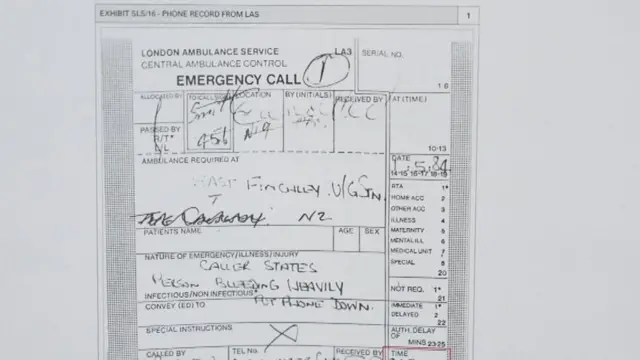 EXHIBIT SLS/16 - PHONE RECORD FROM LAS 1
LONDON AMBULANCE SERVICE LA3 SERIAL NO.
CENTRAL AMBULANCE CONTROL
EMERGENCY CALL 1
1 6
ALLOCATED BY TO CALL SIGN LOCATION BY (INITIALS) RECEIVED BY AT (TIME)
456 N19
PASSED BY
R/T*
L/L
10-13
AMBULANCE REQUIRED AT
DATE 1.5.84
14-15 16-17 18-19
EAST FINCHLEY U/G STN.
N2
RTA 1*
HOME ACC 2
OTHER ACC 3
ILLNESS 4
MATERNITY 5
MENTAL ILL 6
MEDICAL UNIT 7
SPECIAL 8
20
PATIENTS NAME AGE SEX
NATURE OF EMERGENCY/ILLNESS/INJURY
CALLER STATES
PERSON BLEEDING HEAVILY
INFECTIOUS/NON INFECTIOUS*
PUT PHONE DOWN.
CONVEY (ED) TO
NOT REQ. 1*
21
IMMEDIATE 1*
DELAYED 2
22
SPECIAL INSTRUCTIONS
AUTH. DELAY
OF
MINS 23-25
CALLED BY TEL NO. RECEIVED BY TIME